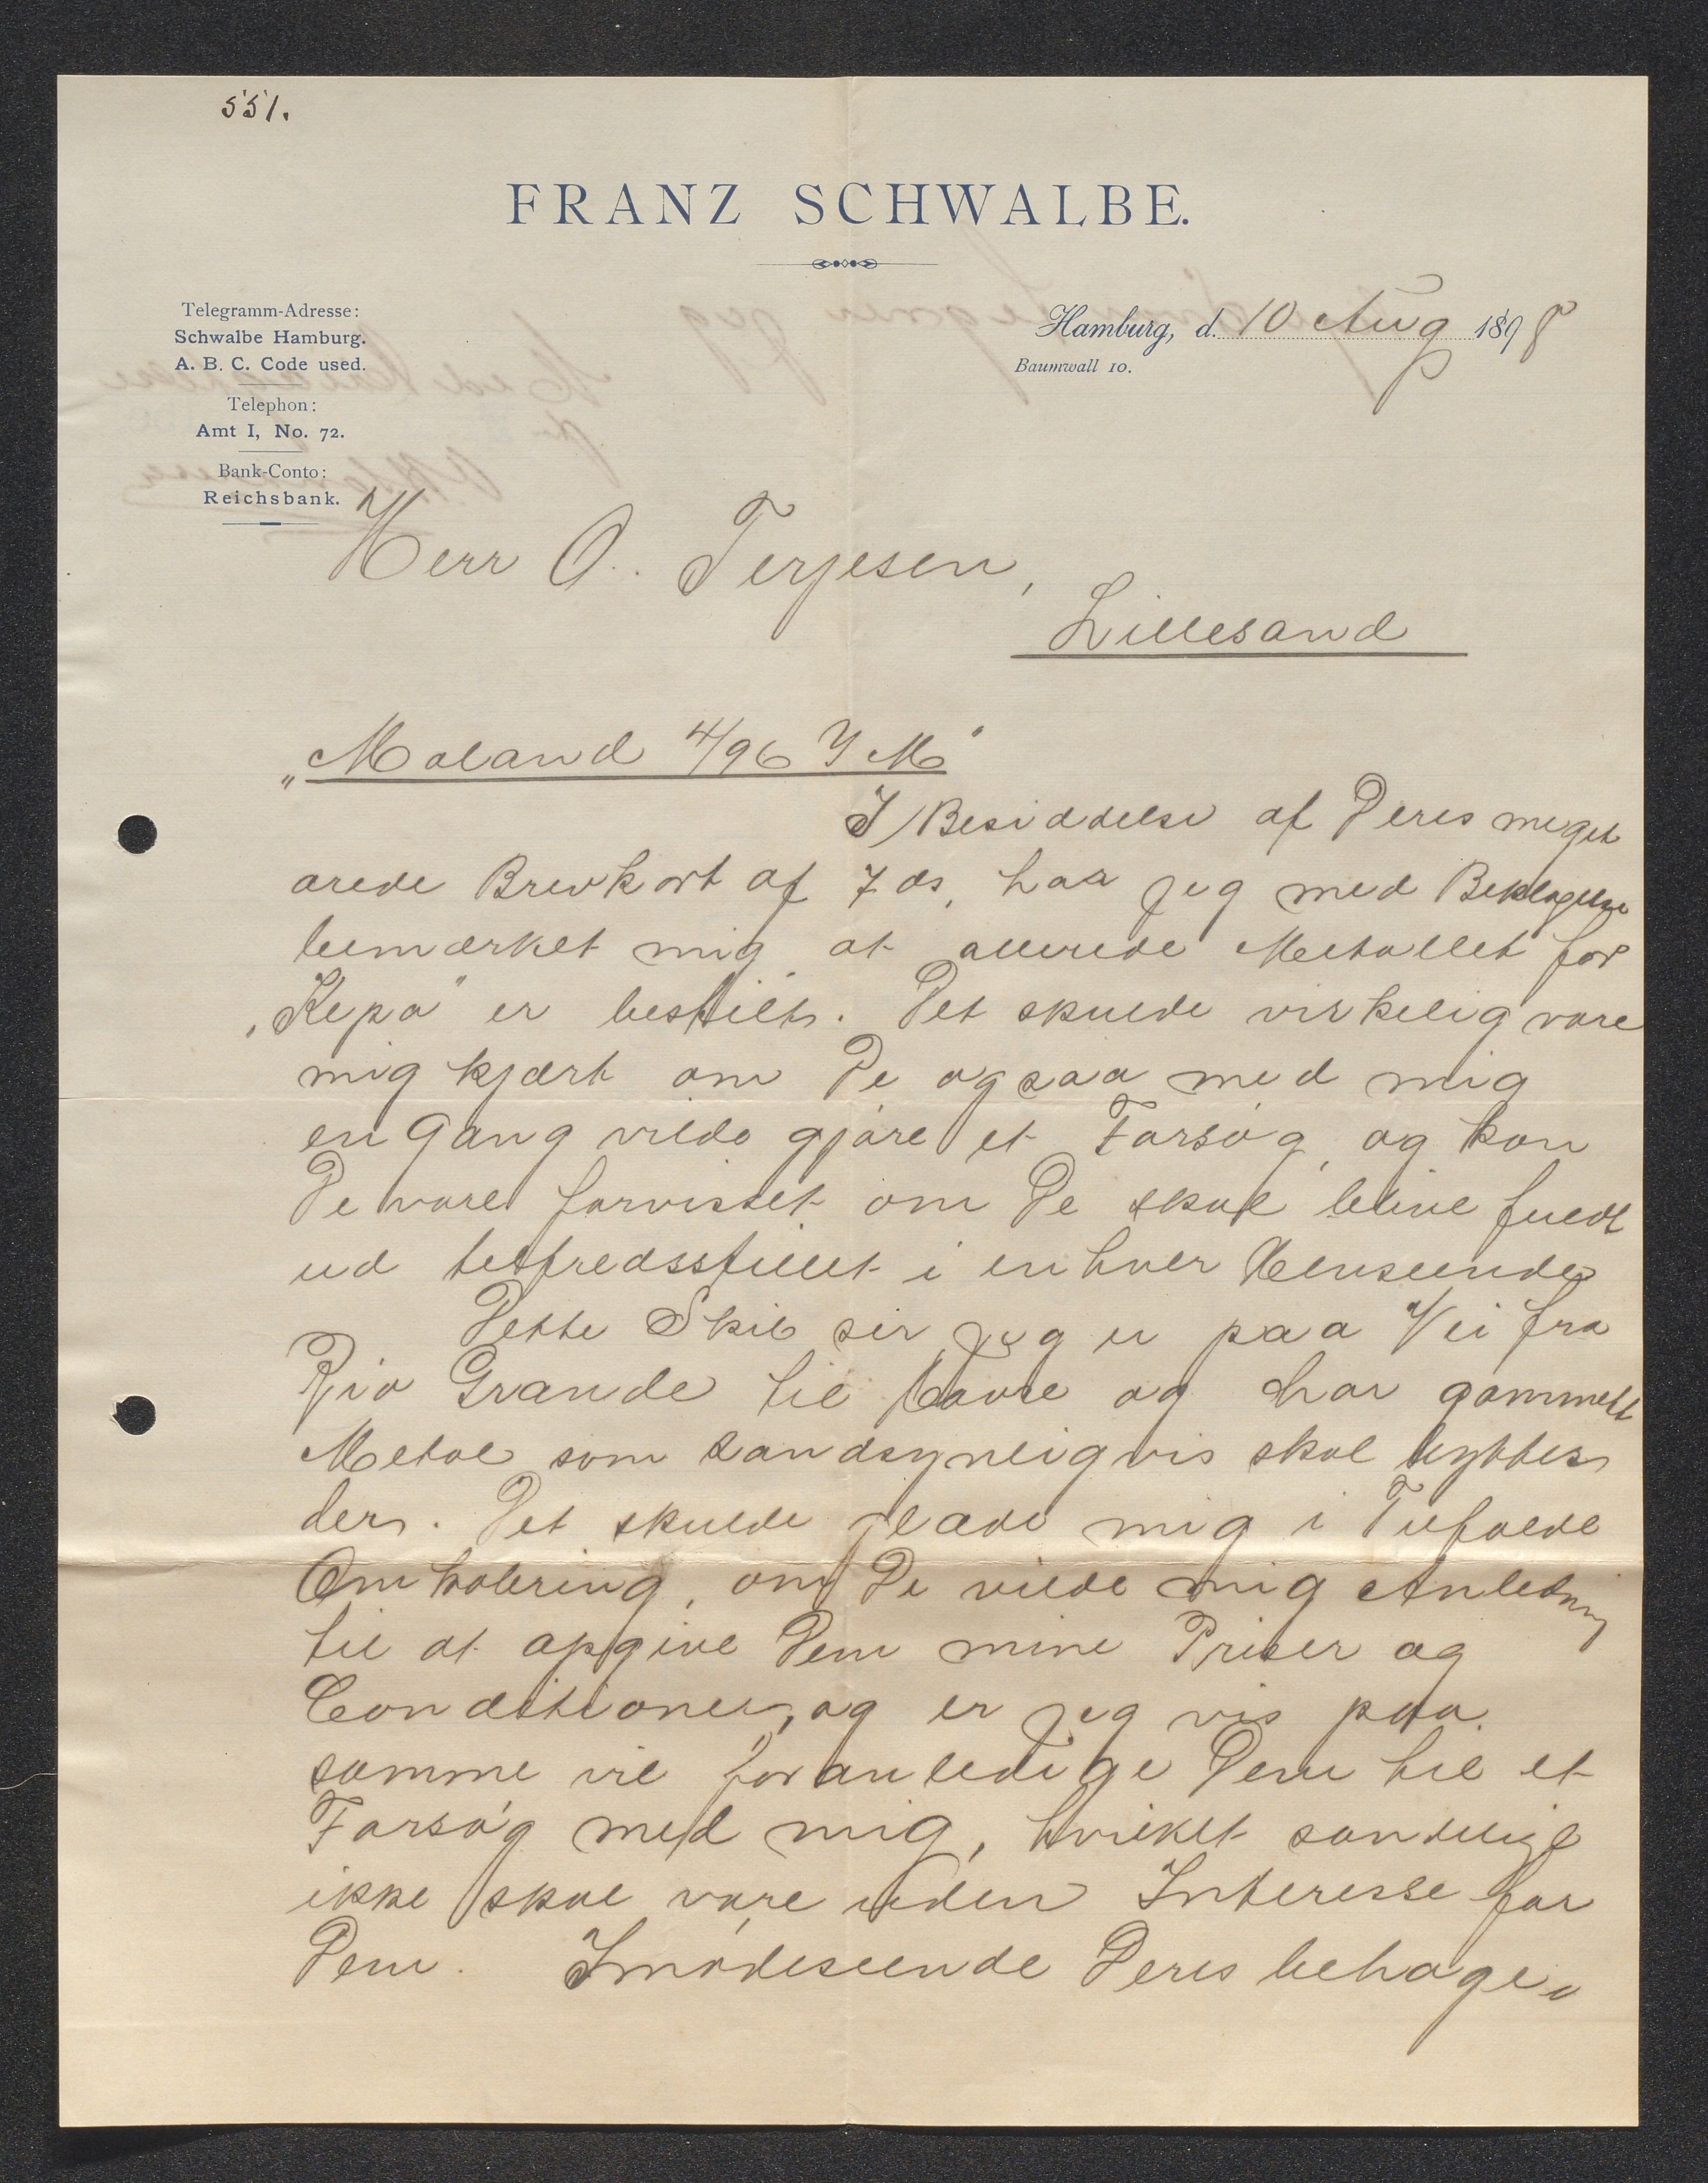 551.
FRANZ SCHWALBE.
Telegramm-Adresse:
Schwalbe Hamburg.
A. B. C. Code used.
Telephon:
Amt I, No. 72.
Bank-Conto:
Reichsbank.
Hamburg, d. 10 Aug 1898
Baumwall 10.
Herr O. Terjesen,
Lillesand
„Moland 4/96 Y M"
I Besiddelse af Deres meget
ærede Brevkort af 7 ds, har jeg med Beklagelse
bemærket mig at allerede Metallet for
„Kepa" er bestilt. Det skulde virkelig være
mig kjært om De ogsaa med mig
en Gang vilde gjøre et Forsøg, og kan
De være forvisset om De skal blive fuldt
ud tilfredsstillet i enhver Henseende
Dette Skib ser jeg er paa Vei fra
Rio Grande til Havre og har gammelt
Metal som sandsynligvis skal byttes
der. Det skulde glæde mig i Tilfælde
Omhalering, om De vilde mig Anledning
til at opgive Dem mine Priser og
Conditioner, og er jeg vis paa
samme vil foranledige Dem til et
Forsøg med mig, hvilket sandelig
ikke skal være uden Interesse for
Dem. Imødeseende Deres behage